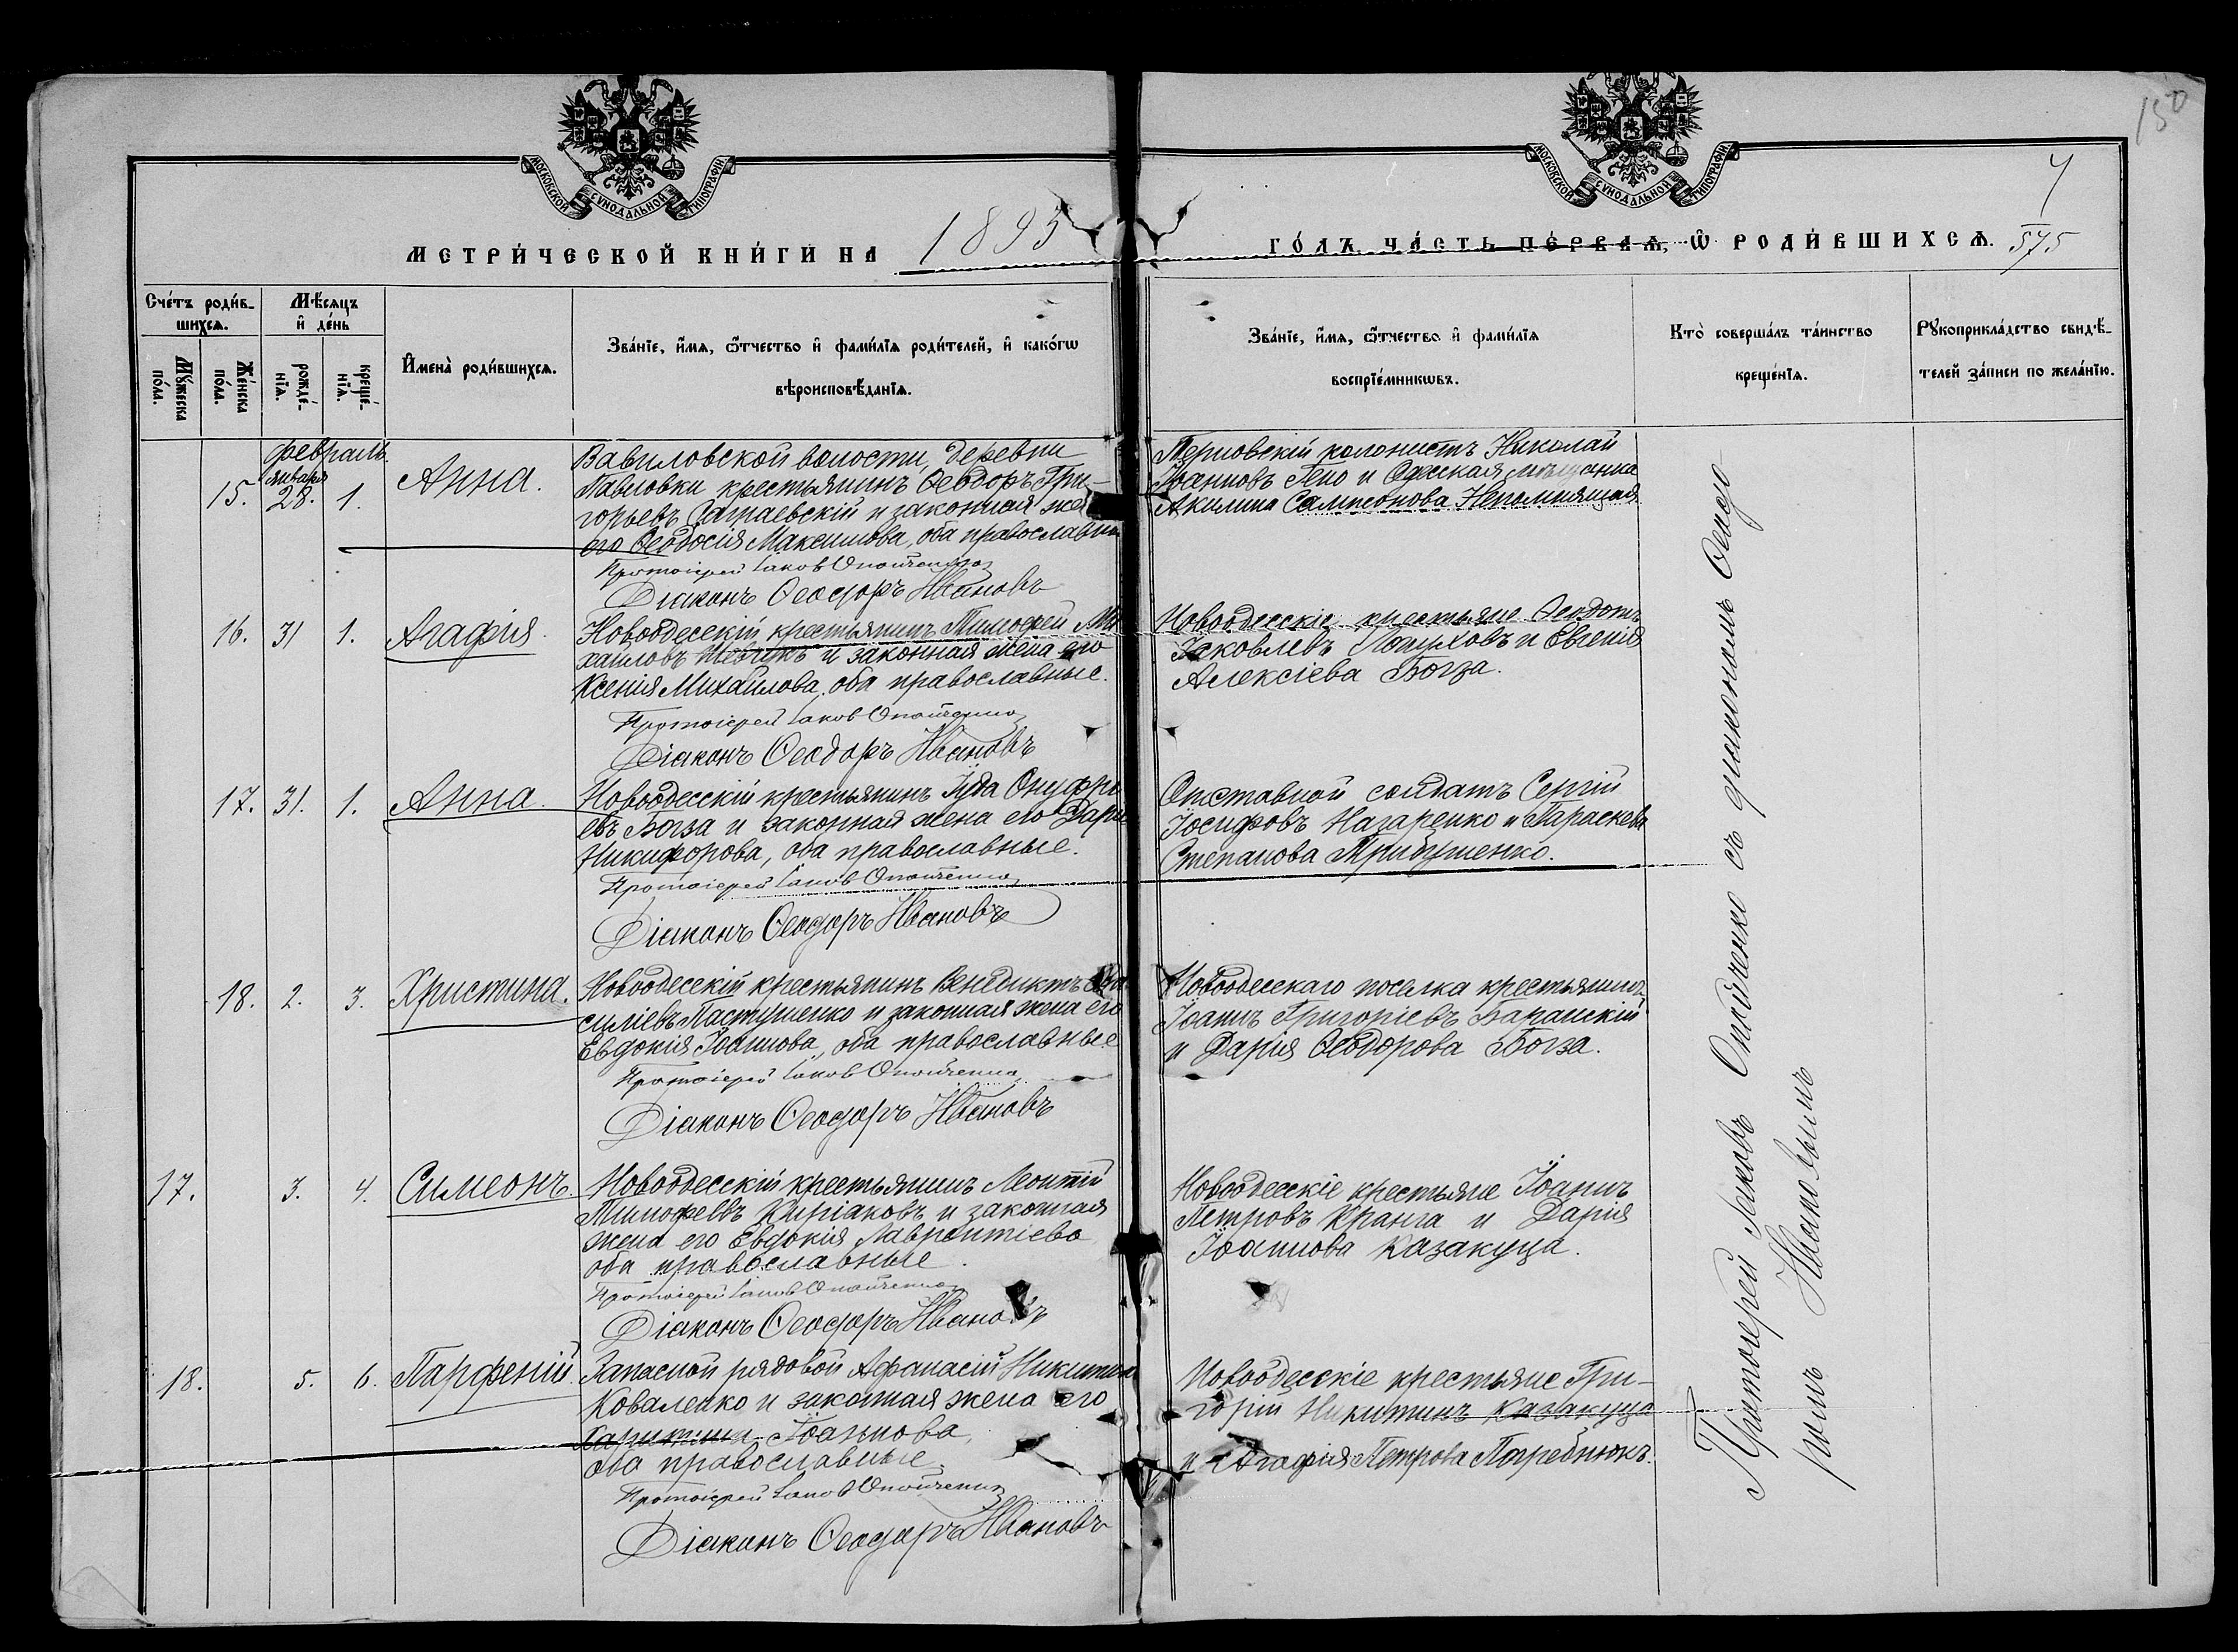 150
7
575
МОСКОВСКОЙ СѴНОДАЛЬНОЙ ТИПОГРАФІИ
МОСКОВСКОЙ СѴНОДАЛЬНОЙ ТИПОГРАФІИ
МЕТРИ́ЧЕСКОЙ КНИ́ГИ НА 1895 ГО́ДЪ, ЧА́СТЬ ПЕ́РВАЯ, Ѡ҆ РОДИ́ВШИХСѦ.
Сче́тъ роди́в-
шихсѧ.
Мꙋ́жеска по́ла.
Же́нска по́ла.
Мѣ́сѧцъ и҆ де́нь
рожде́-
нїѧ.
креще́-
нїѧ.
И҆мена̀ роди́вшихсѧ.
Зва́нїе, и҆́мѧ, ѻ҆́тчество и҆ фами́лїѧ роди́телей, и҆ како́гѡ
вѣроисповѣ́данїѧ.
Зва́нїе, и҆́мѧ, ѻ҆́тчество и҆ фами́лїѧ
воспрїе́мникѡвъ.
Кто̀ соверша́лъ та́инство
креще́нїѧ.
Рꙋкоприкла́дство свидѣ́-
телей за́писи по жела́нїю.
февраль.
15. января 28. 1. Анна.
Вавиловской волости, деревни
Павловки крестьянинъ Ѳеодоръ Гри-
горьевъ и законная жена
его Ѳеодосія Максимова, оба православные
Протоіерей Іаковъ Опойченко
Діаконъ Ѳеодоръ Ивановъ
Терновскій колонистъ Николай
Іоанновъ Гено и Одесская мѣщанка
Акилина Сампсонова Непомнящая
16. 31 1. Агафія.
Новоодесскій крестьянинъ Тимофей Ми-
хаиловъ Шевчукъ и законная жена его
Ксенія Михайлова, оба православные.
Протоіерей Іаковъ Опойченко
Діаконъ Ѳеодоръ Ивановъ
Новоодесскіе крестьяне Ѳеодотъ
Іаковлевъ и Евгенія
Алексіева Богза.
17. 31. 1. Анна.
Новоодесскій крестьянинъ Іуда Онуфрі-
евъ Богза и законная жена его Дарія
Никифорова, оба православные.
Протоіерей Іаковъ Опойченко
Діаконъ Ѳеодоръ Ивановъ
Отставной солдатъ Сергій
Іосифовъ Назаренко и Параскева
Степанова Трибушенко.
18. 2. 3. Христина.
Новоодесскій крестьянинъ Венедиктъ Ва-
силіевъ Пастушенко и законная жена его
Евдокія Іоаннова, оба православные
Протоіерей Іаковъ Опойченко
Діаконъ Ѳеодоръ Ивановъ
Новоодесскаго поселка крестьянинъ
Іоаннъ Григоріевъ Баранскій
и Дарія Ѳеодорова Богза.
17. 3. 4. Симеонъ.
Новоодесскій крестьянинъ Леонтій
Тимофеевъ Киріаковъ и законная
жена его Евдокія Лаврентіева
оба православные.
Протоіерей Іаковъ Опойченко
Діаконъ Ѳеодоръ Ивановъ
Новоодесскіе крестьяне Іоаннъ
Петровъ Кранга и Дарія
Іоаннова Казакуца.
18. 5. 6. Парфеній.
Запасной рядовой Афанасій Никитинъ
Коваленко и законная жена его
Харитина Іоаннова,
оба православные.
Протоіерей Іаковъ Опойченко
Діаконъ Ѳеодоръ Ивановъ
Новоодесскіе крестьяне Гри-
горій Никитинъ Казакуца
и Агафія Петрова Погребнюкъ.
Протоіерей Іаковъ Опойченко съ діакономъ Ѳеодо-
ромъ Ивановымъ